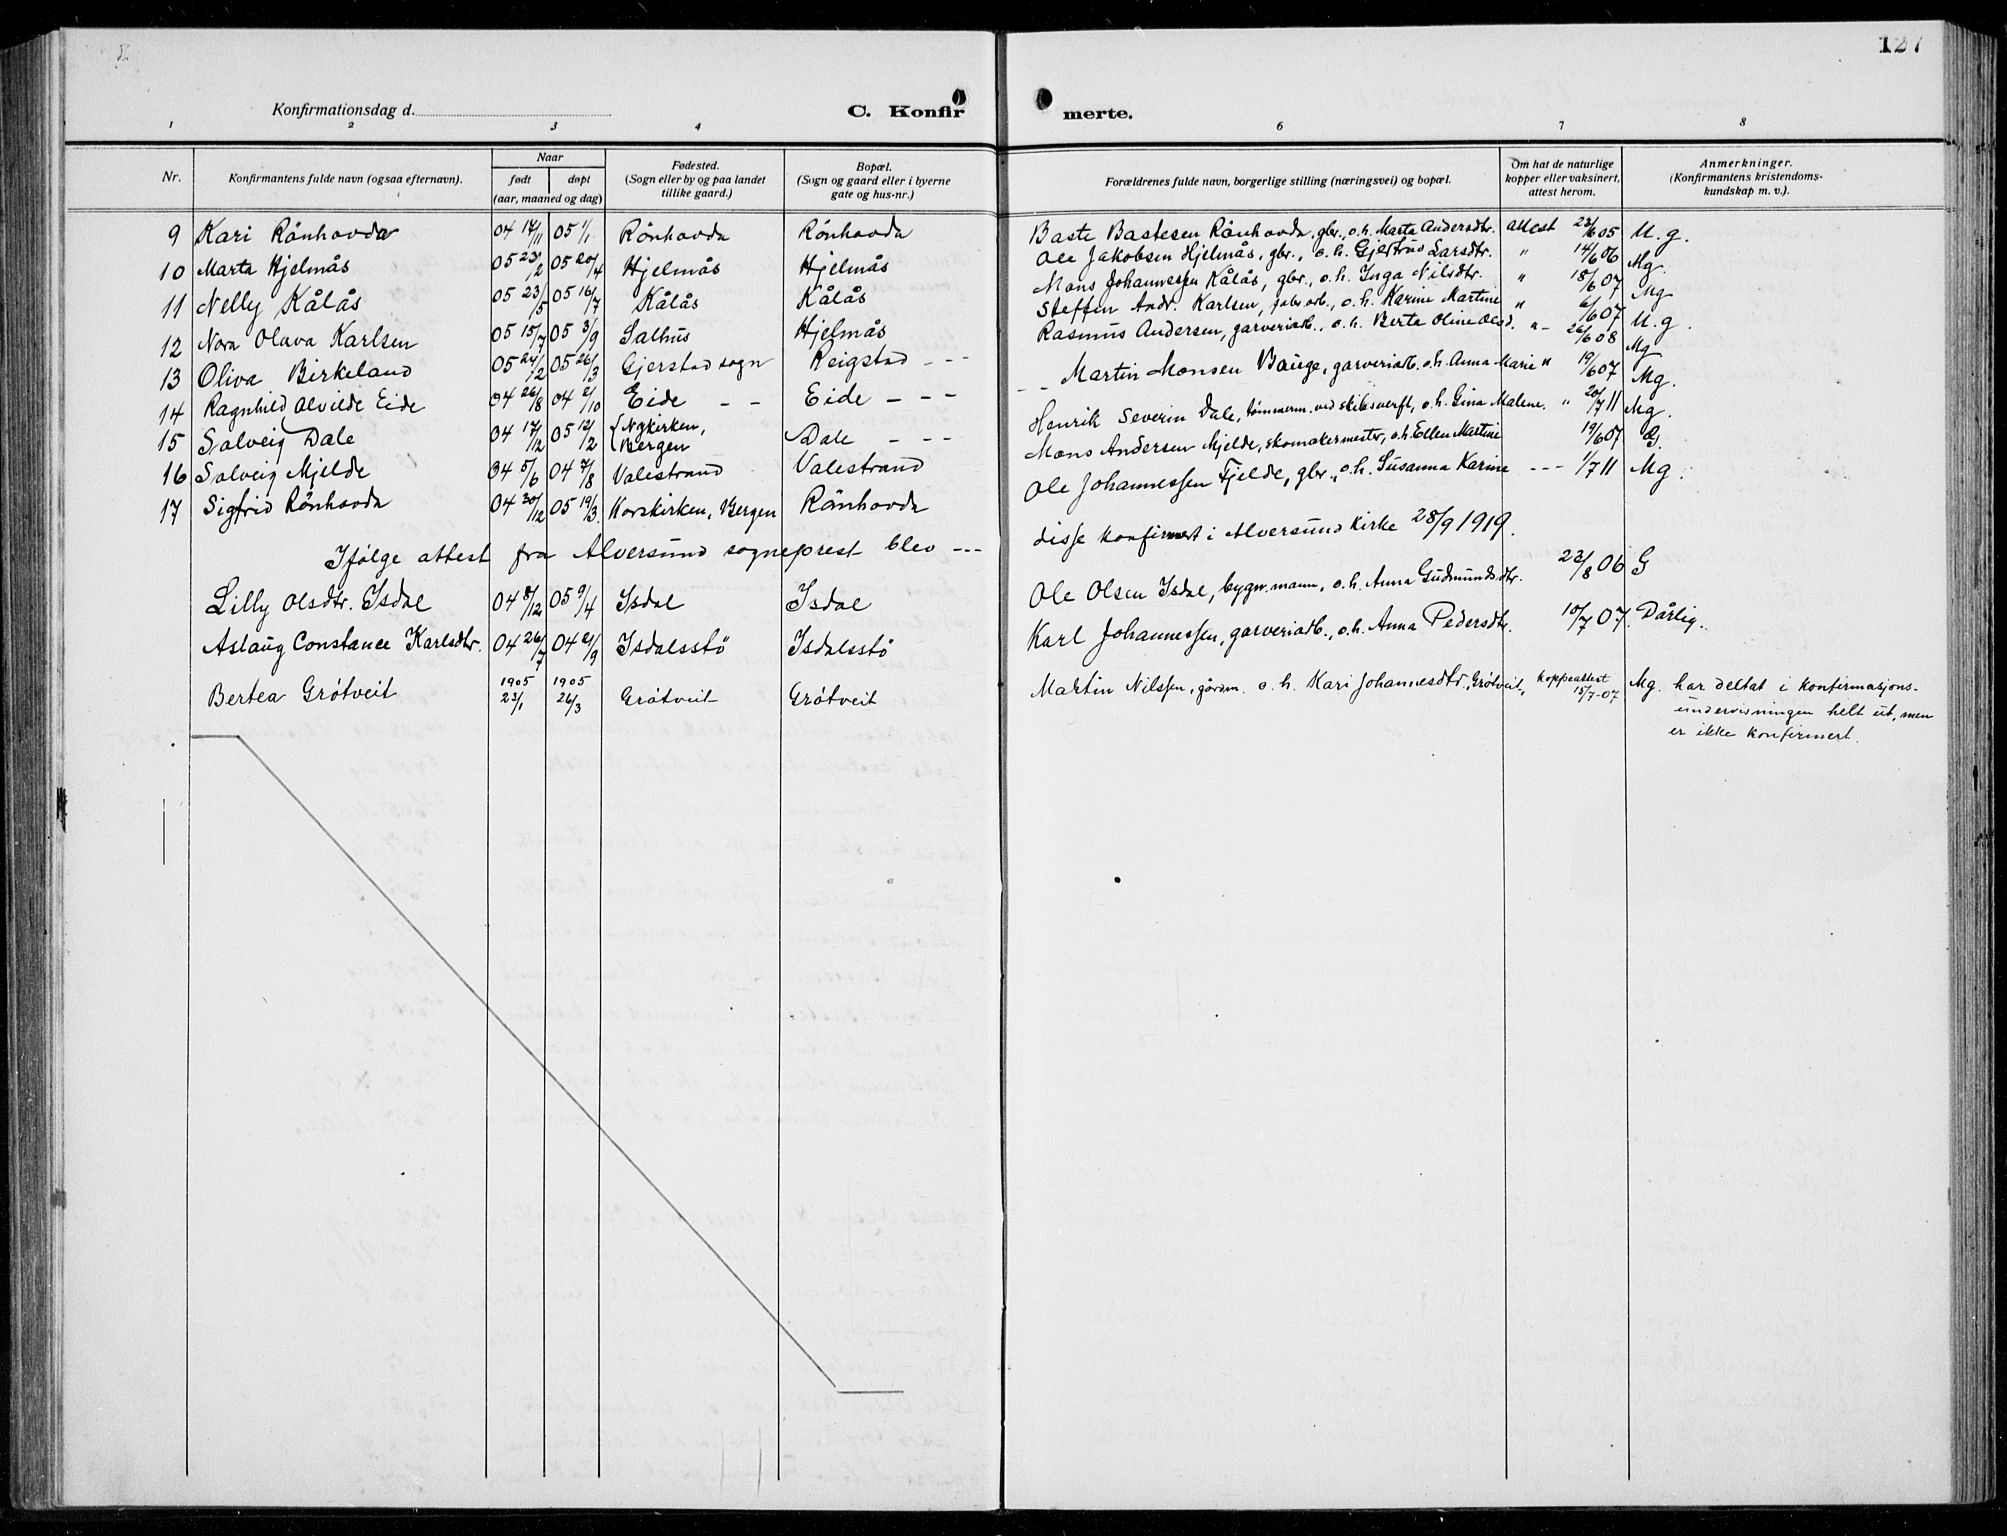 127
Konfirmationsdag d.
C. Konfirmerte.
1 2 3 4 6 7 8
Nr. Konfirmantens fulde navn (ogsaa efternavn). Naar født døpt (aar, maaned og dag) Fødested. (Sogn eller by og paa landet tillike gaard.) Bopæl. (Sogn og gaard eller i byerne gate og hus-nr.) Forældrenes fulde navn, borgerlige stilling (næringsvei) og bopæl. Om hat de naturlige kopper eller vaksinert, attest herom. Anmerkninger. (Konfirmantens kristendoms-kundskap m. v.).
9 Kari Rönhovde 04 17/11 05 1/1 Rönhovda Rönhovda Baste Bastesen Rönhovda, gbr., o.h. Marta Andersdtr. attest 23/6 05 M.g.
10 Marta Hjelmås 05 23/2 05 20/4 Hjelmås Hjelmås Ole Jakobsen Hjelmås, gbr., o.h. Gjertrud Larsdtr. " 14/6 06 Mg.
11 Nelly Kålås 05 23/5 05 16/7 Kålås Kålås Mons Johannessen Kålås, gbr., o.h. Inga Nilsdtr. " 18/6 07 Mg
12 Nora Olava Karlsen 05 15/7 05 3/9 Salhus Hjelmås Steffen Andr. Karlsen, fabr.arb., o.h. Karine Martine " 6/6 07 M.g.
13 Oliva Birkeland 05 24/2 05 26/3 Gjerstad sogn Reigstad - - - Rasmus Andersen, garveriarb., o.h. Berta Oline Olsd. " - 26/6 08 Mg
14 Ragnhild Alvilde Eide 04 26/8 04 2/10 Eide - - Eide - - - - - Martin Monsen Bauge, garveriarb. o.h. Anna Marie " 19/6 07 Mg.
15 Solveig Dale 04 17/12 05 12/2 Nykirken, Bergen Dale - - - Henrik Severin Dale, tømmerm. ved skibsverft, o.h. Gina Malene. " 20/7 11 Mg.
16 Solveig Mjelde 04 5/6 04 7/8 Valestrand Valestrand Mons Andersen Mjelde, skomakermester, o.h. Ellen Martine 19/6 07 G.
17 Sigfrid Rönhovda 04 30/12 05 19/3 Korskirken, Bergen Rönhovda Ole Johannessen Fjelde, gbr., o.h. Susanna Karine - - - 1/7 11 Mg.
Ifølge attest fra Alversund sogneprest blev --- disse konfirmert i Alversund kirke 28/9 1919.
Lilly Olsdtr. Isdal 04 8/12 05 9/4 Isdal Isdal Ole Olsen Isdal, bygn.mann, o.h. Anna Gudmundsdtr. 23/8 06 G
Aslaug Constance Karlsdtr. 04 26/7 04 2/9 Isdalsstö Isdalsstö Karl Johannessen, garveriarb., o.h. Anna Pedersdtr. 10/7 07. Dårlig.
Bertea Grótveit 1905 23/1 1905 26/3 Grótveit Grótveit Martin Nilssen, gårdm. o.h. Kari Johannesdtr. Grótveit, koppeattest 15/7-07 Mg. har deltat i konfirmasjons-
undervisningen helt ut, men
er ikke konfirmert.